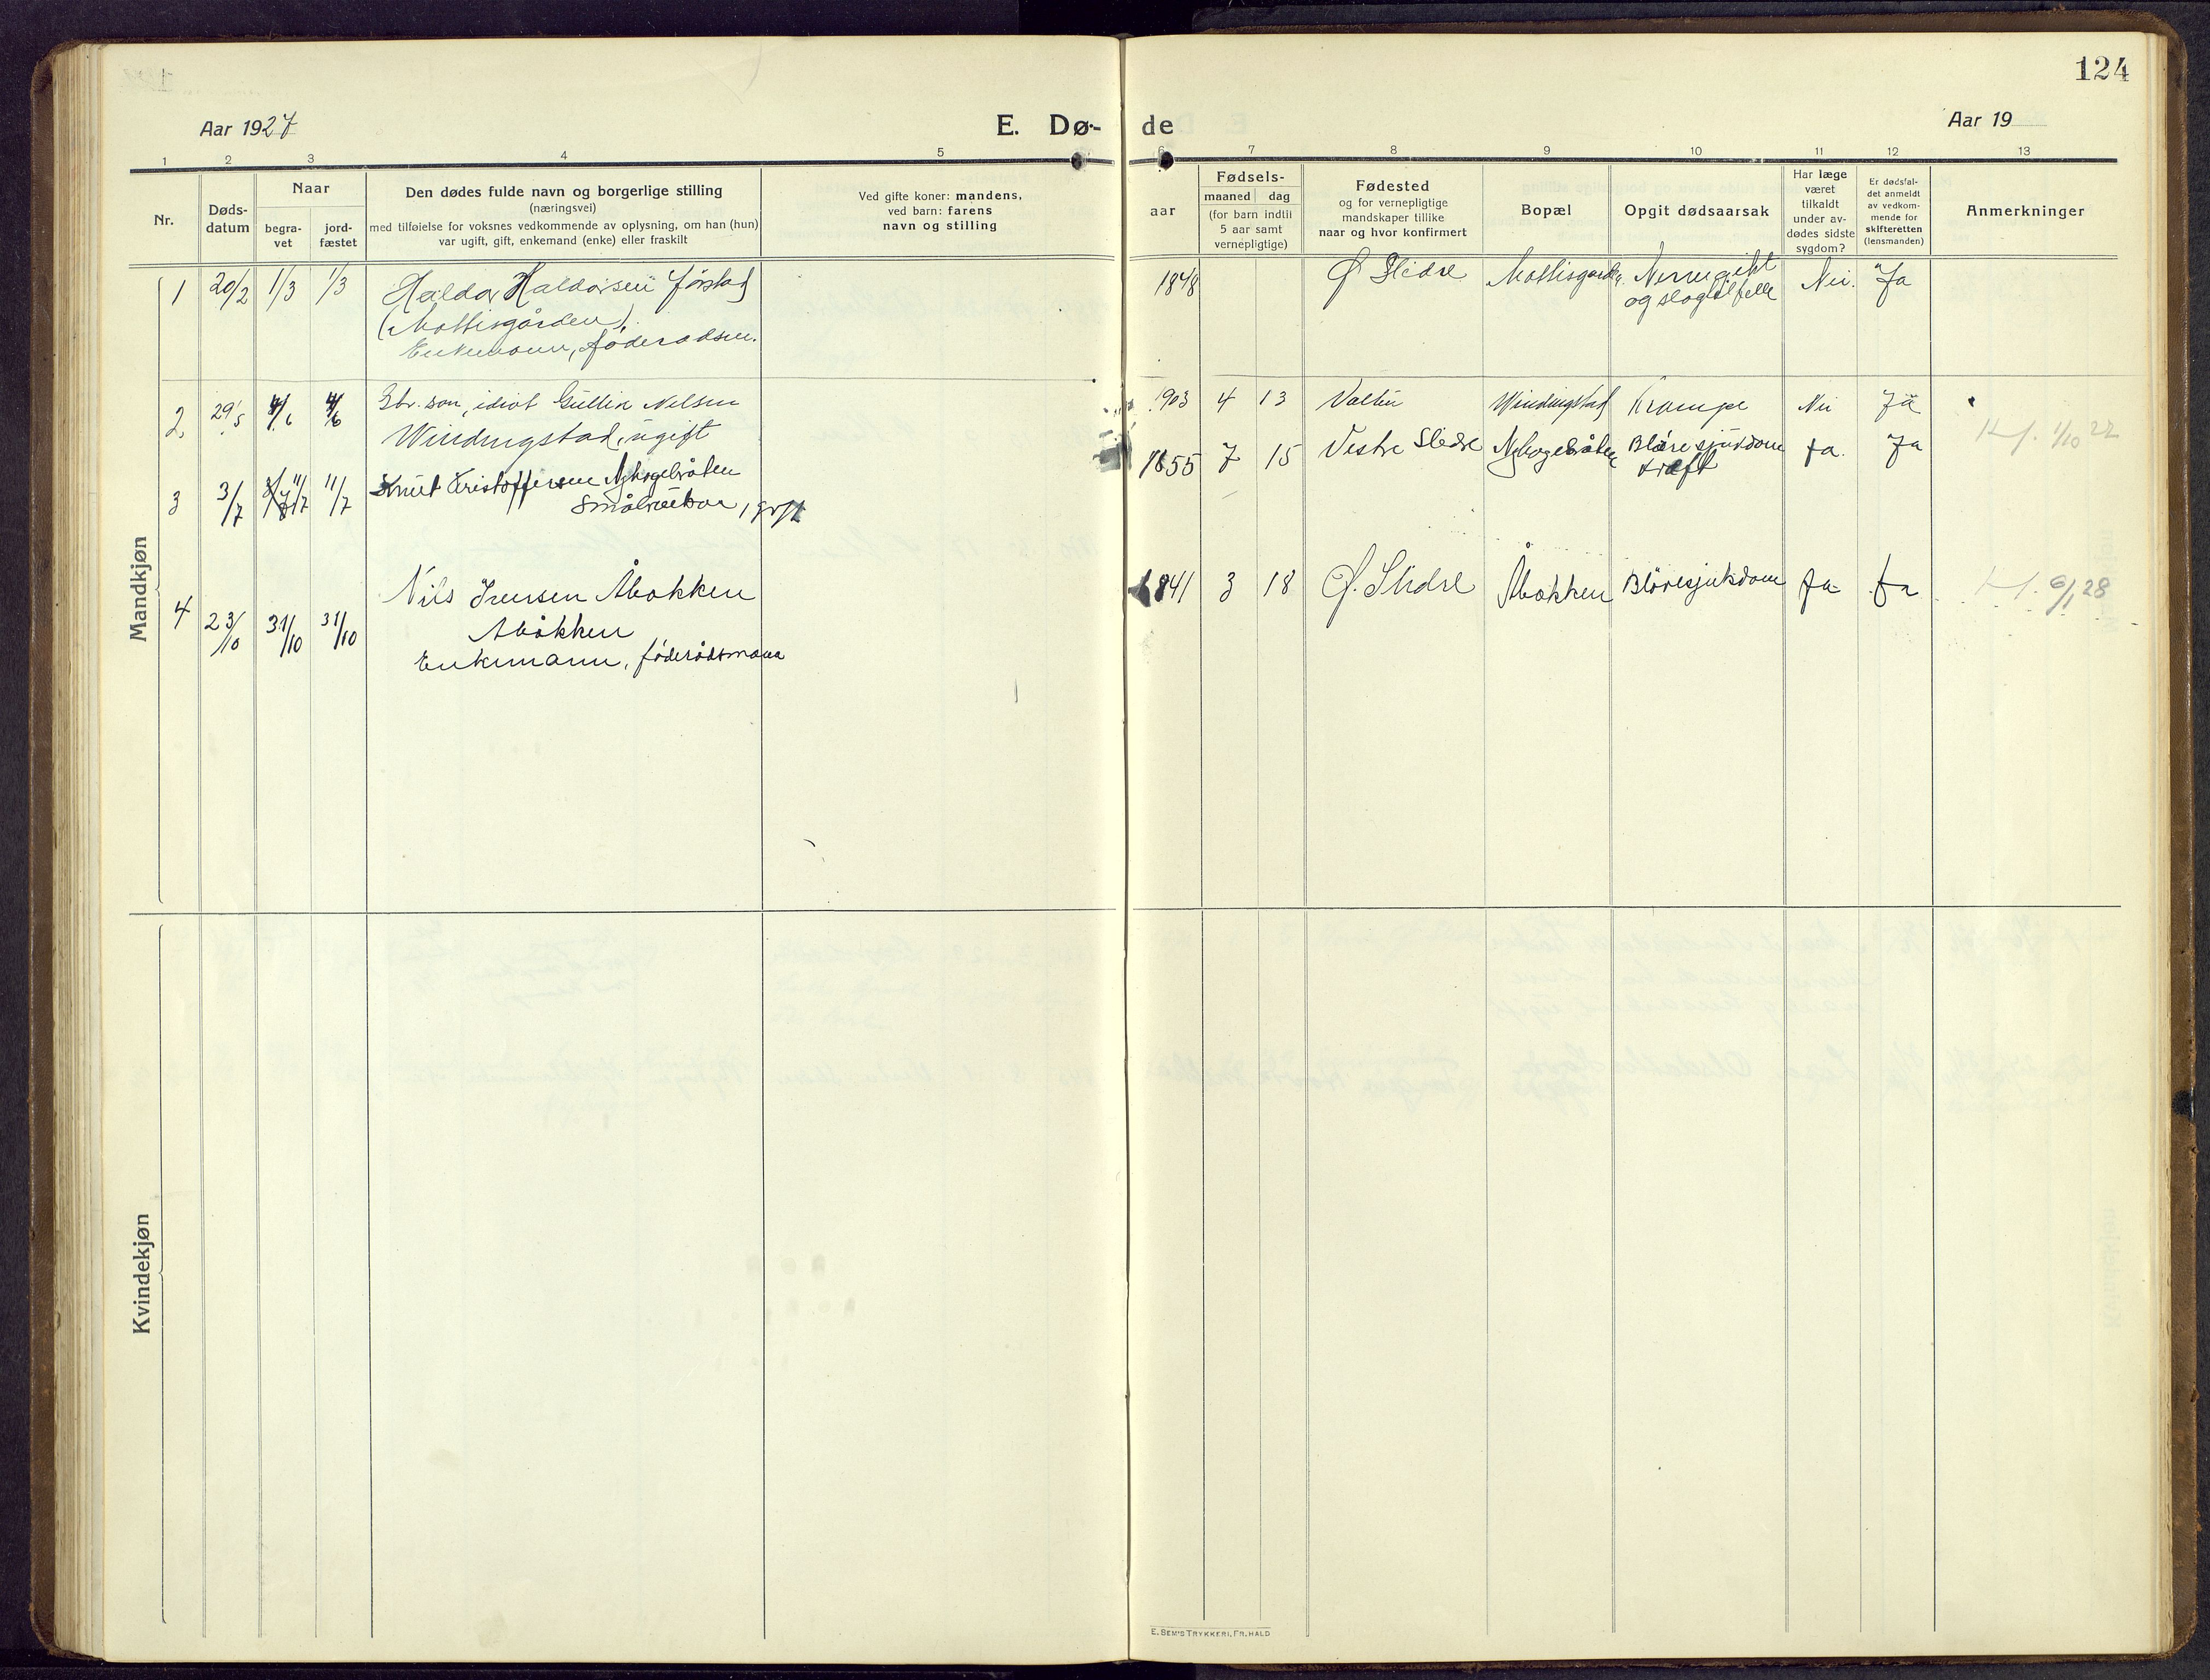 124
Aar 1927
E. Dø-
de
Aar 19
1 2 3 4 5 6 7 8 9 10 11 12 13
Nr.
Døds-
datum
Naar
begra-
vet
jord-
fæstet
Den dødes fulde navn og borgerlige stilling
(næringsvei)
med tilføielse for voksnes vedkommende av oplysning, om han (hun)
var ugift, gift, enkemand (enke) eller fraskilt
Ved gifte koner: mandens,
ved barn: farens
navn og stilling
aar
Fødsels-
maaned dag
(for barn indtil
5 aar samt
vernepligtige)
Fødested
og for vernepligtige
mandskaper tillike
naar og hvor konfirmert
Bopæl
Opgit dødsaarsak
Har læge
været
tilkaldt
under av-
dødes sidste
sygdom?
Er dødsfal-
det anmeldt
av vedkom-
mende for
skifteretten
(lensmanden)
Anmerkninger
Mandkjøn
1 20/2 1/3 1/3 Haldor Haldorsen
(Mottisgården)
Enkemann, føderådsm.
1848 Ø Slidre Mottisgarden
og slagtilfelle
Nei. Ja
2. 29/5 4/6 4/6 Gbr. søn, idiot Gullik Nilsen
Windingstad, ugift
1903 4 13 Windingstad Krampe Nei Ja
3 3/7 11/7 11/7 Knut Kristoffersen Nyhagebråten
Småbruker, gift
1855 7 15 Vestre Slidre Nyhagebråten Blæresjukdom
kræft
Ja. Ja
4 23/10 31/10 31/10 Nils Iversen Åbakken
Åbakken
Enkemann, føderådsmann
1841 3 18 Ø. Slidre Åbakken Blæresjukdom Ja Ja
6/1 28
Kvindekjøn
E. SEM'S TRYKKERI, FR.HALD